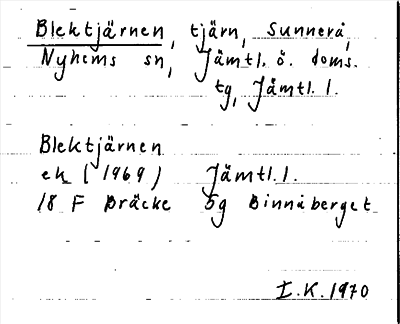 Blektjärnen, tjärn, Sunnerå,
Nyhems sn, Jämtl. ö. doms.
tg, Jämtl. l.
Blektjärnen
ek (1969) Jämtl. l.
18 F Bräcke 5g Binnåberget
I.K. 1970